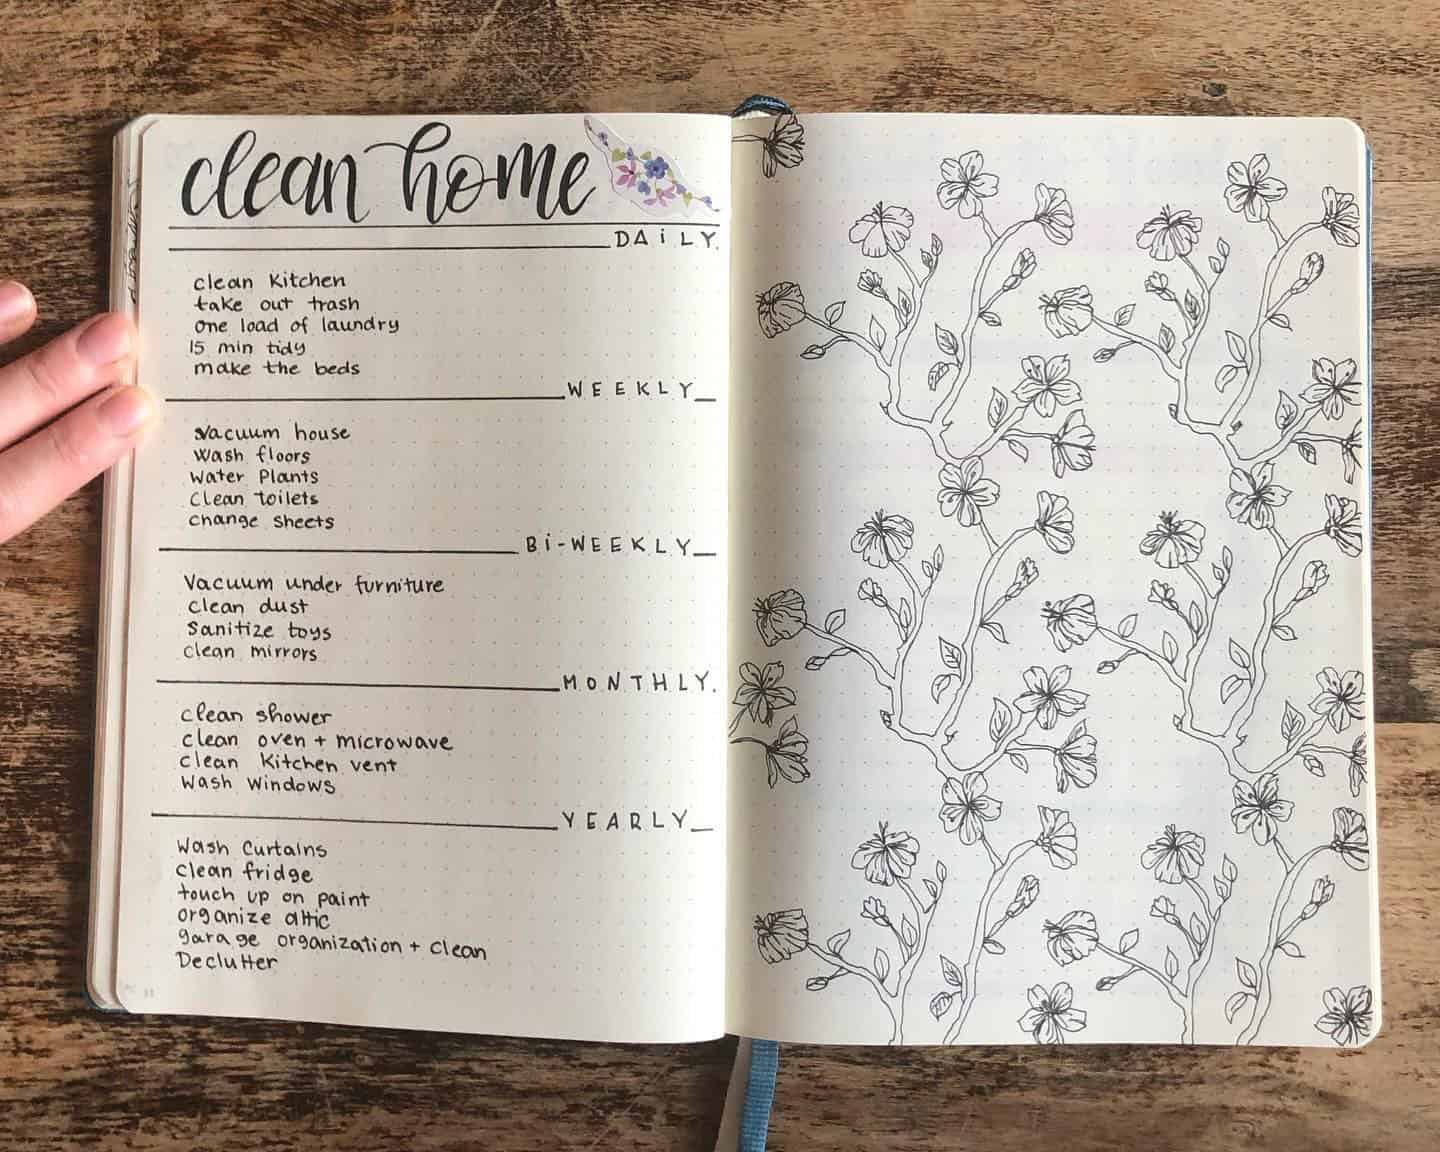 clean home
DAiLY.
clean Kitchen
take out trash
one load of laundry
15 min tidy
make the beds
WEEKLY
vacuum house
wash floors
Water Plants
Clean toilets
change sheets
Bi-WEEKLY
Vacuum under furniture
clean dust
Sanitize toys
clean mirrors
MONTHLY.
clean shower
clean oven + microwave
clean Kitchen vent
Wash Windows
YEARLY
Wash Curtains
Clean fridge
touch up on paint
organize attic
garage organization + clean
Declutter